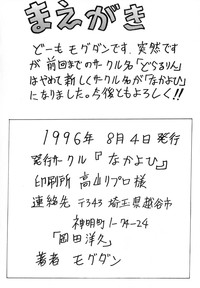 まえがき
どーもモグダンです、突然です
が前回までのサークル名「どらりん」
はやめて新しくサークル名が「なかよひ」
になりました。今後ともよろしく!!
1996年 8月4日発行
発行サークル『なかよひ』
印刷所 高山リプロ様
連絡先 〒343 埼玉県越谷市
神明町1-74-24
「岡田洋久」
著者 モグダン